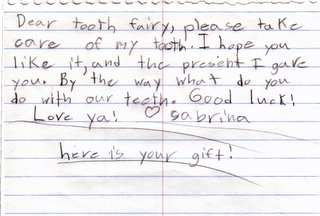 Dear tooth fairy, please take
care of my tooth. I hope you
like it, and the present I gave
you. By the way what do you
do with our teeth. Good luck!
Love ya! ♡ Sabrina
here is your gift!